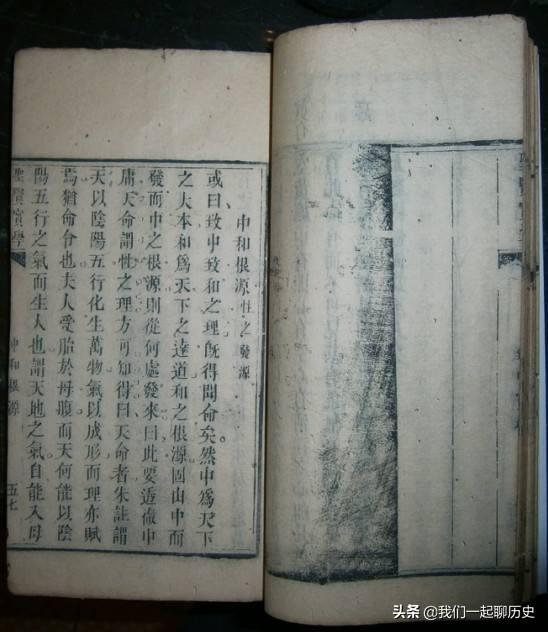 中和根源性之發源
或曰致中致和之理旣得聞命矣。然中爲天下
之大本和爲天下之達道和之根源固由中而
發而中之根源則從何處發來曰此要透徹中
庸天命謂性之理方可知得曰天命者朱註謂
天以陰陽五行化生萬物氣以成形而理亦賦
焉猶命令也夫人受胎於母腹而天何能以陰
陽五行之氣而生人也謂天地之氣自能入母
聖賢實學 中和根源 五七
头条 @我们一起聊历史